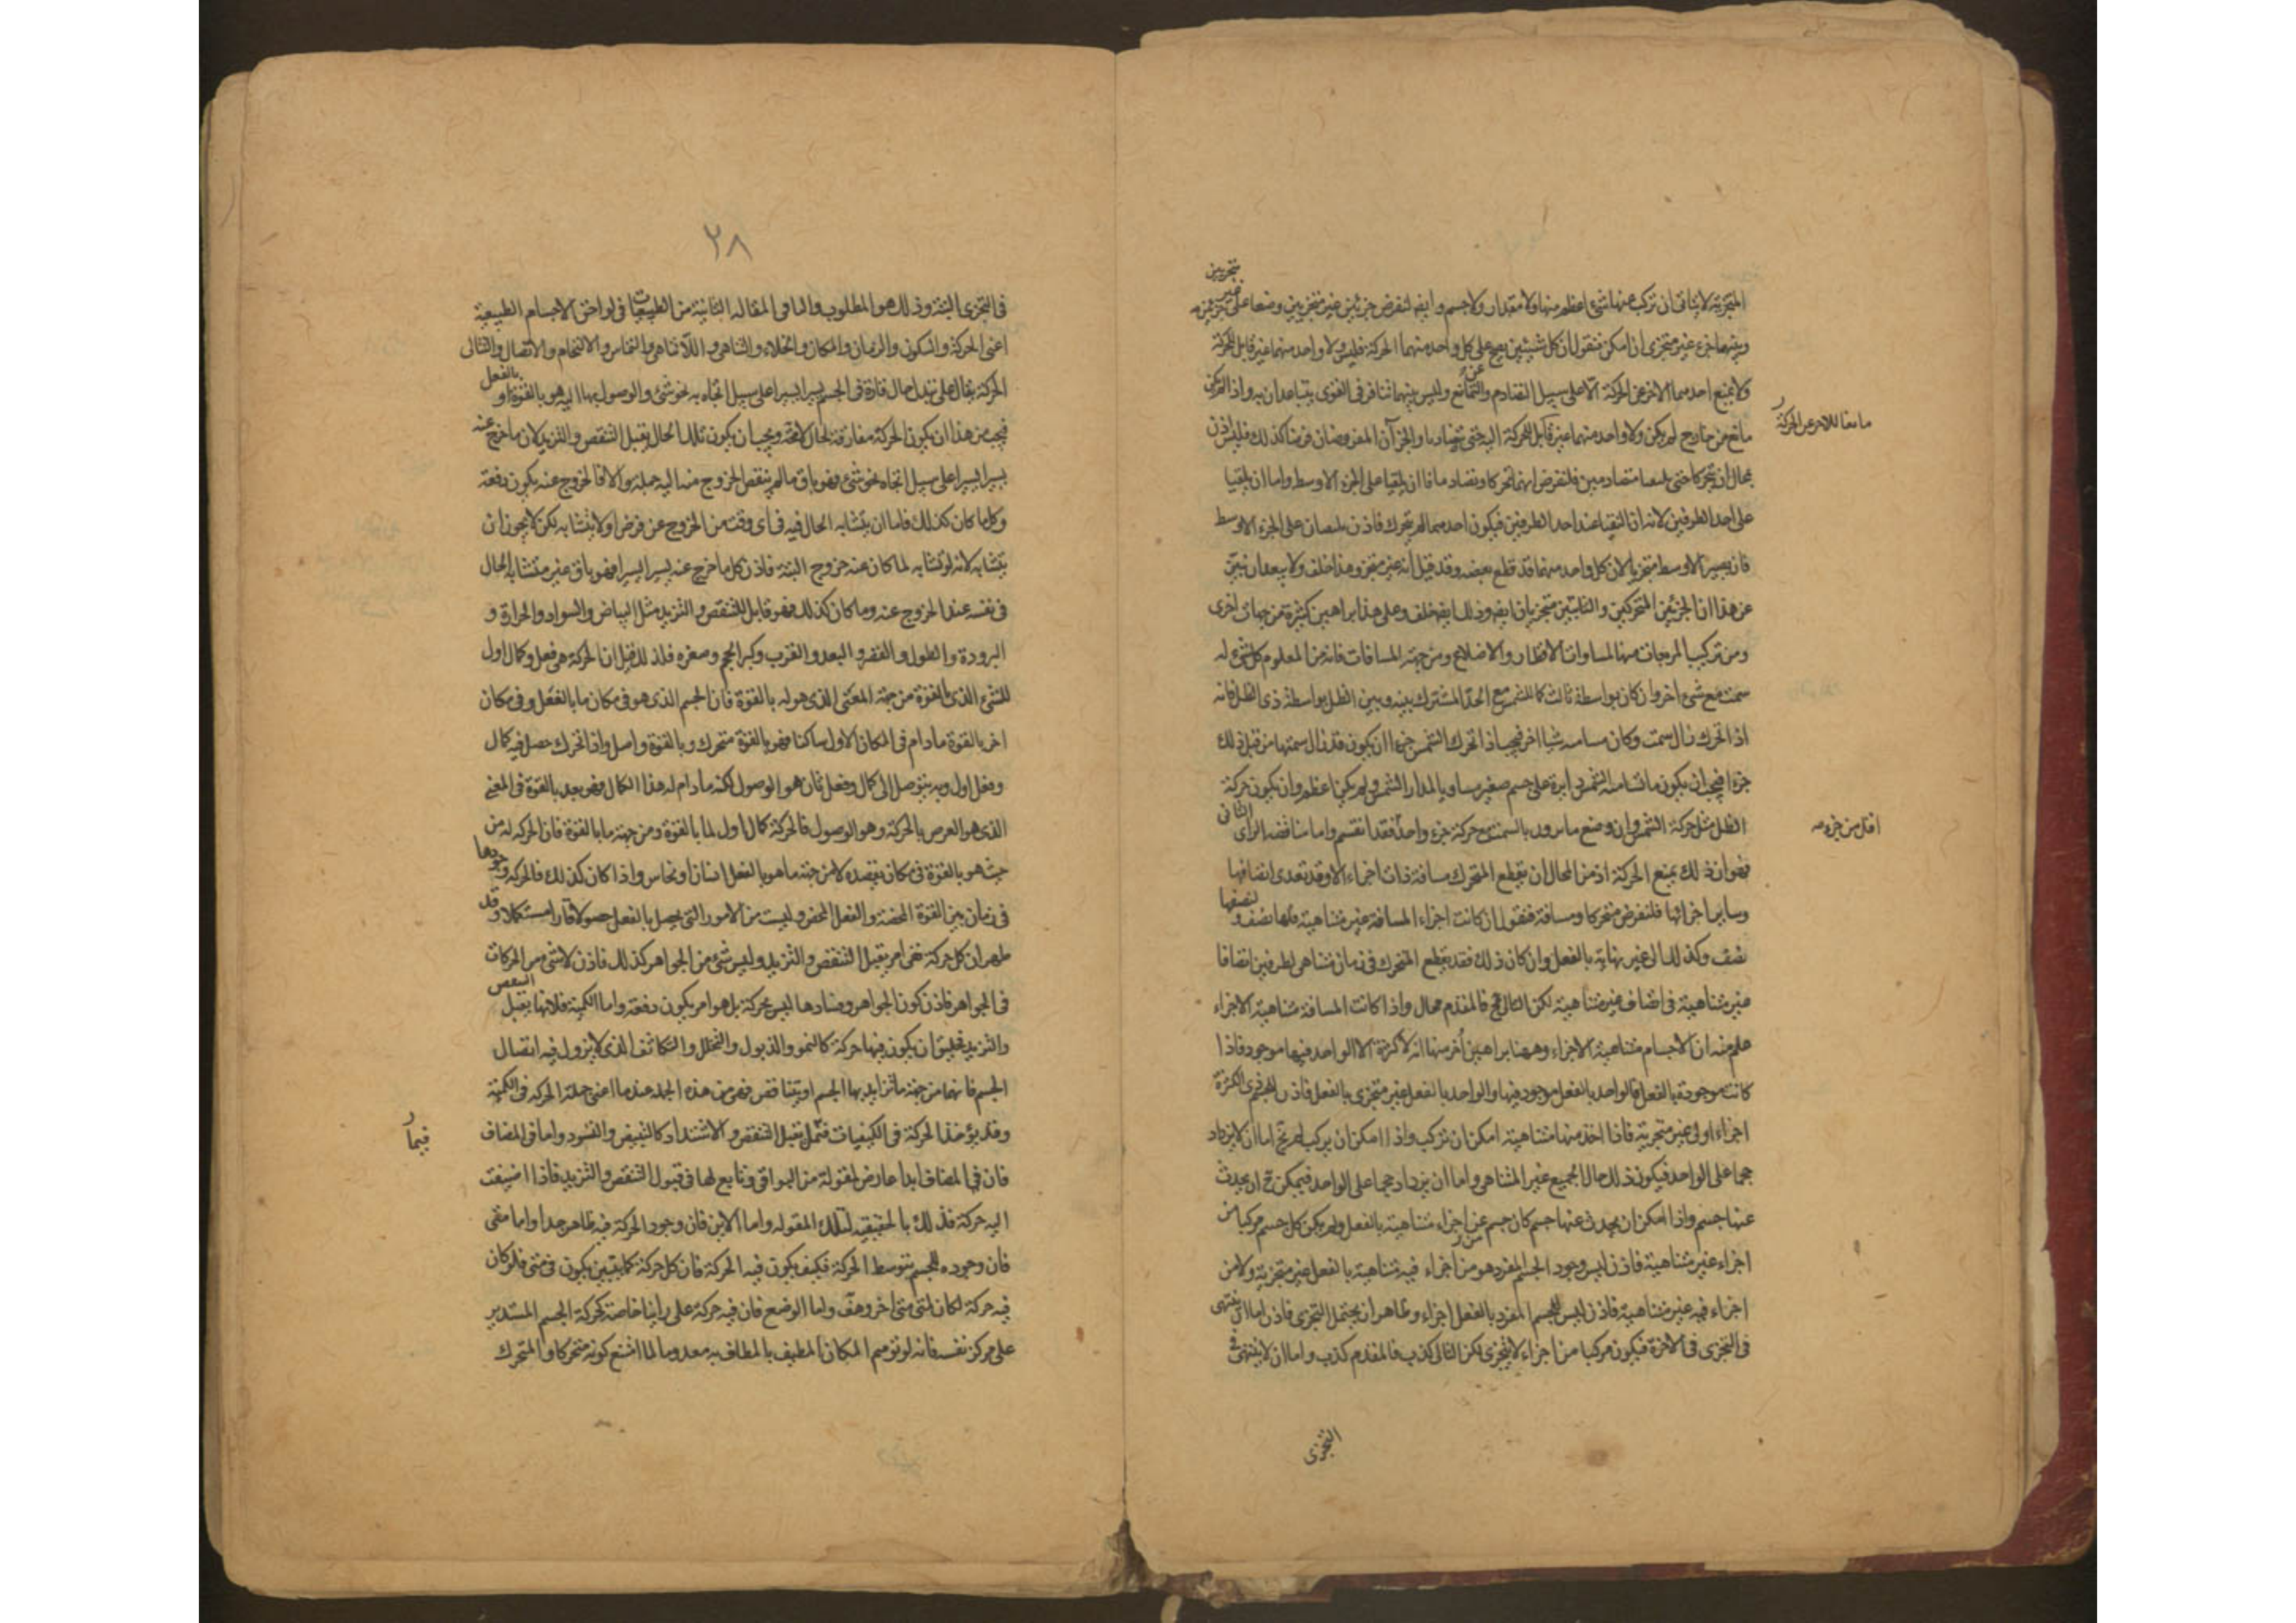 المتجزية لا يتاتى ان تركب عنها شئ اعظم منها ولا مقدار ولا جسم وايضا لنفرض جزئين غير متجزيين وضعا على جزئين
غير
متجزيين
وبينهما جزء غير متجزى ان امكن فنقول ان كل شيئين يصح على كل واحد منهما الحركة فليس ولا واحد منهما غير قابل للحركة
ولا يمنع احدهما الاخر عن الحركة الا على سبيل التصادم والتمانع وليس بينهما تنافر فى القوى يتباعدان به واذا لم يكن
عن
مانع من خارج لم يكن ولا واحد منهما غير قابل للحركة اليه حتى يتصادما والجزآن المفروضان فرضا كذلك فليس اذن
مانعا للاخر عن الحركة
بمحال ان يتحركا حتى يلتقيا متصادمين فلنفرض انهما تحركا وتصادما فاما ان يلتقيا على الجزء الاوسط واما ان يلتقيا
على احد الطرفين لانه ان التقيا عند احد الطرفين فيكون احدهما لم يتحرك فاذن يلتقيان على الجزء الاوسط
فاذن يصير الاوسط متجزيا لان كل واحد منهما قد قطع بعضه وقد قيل انه غير متجز وهذا خلف ولا يبعد ان تبين
عن هذا ان الجزئين المتحركين والثابتين متجزيان ايضا وذلك ايضا خلف وعلى هذا براهين كثيرة من جهات اخرى
ومن تركيب المربعات منها لمساوات الاقطار والاضلاع ومن جهة المسامتات فانه من المعلوم كل شئ له
سمت مع شئ اخر وان كان بواسطة ثالث كما للشمس مع الحد المشترك بينه وبين الظل بواسطة ذى الظل فانه
اذا تحرك زال سمت وكان مسامته شيا اخر فيجب اذا تحرك الشمس جزءا ان يكون قد زال سمتها من قبل ذلك
جزءا فيجب ان يكون ما تسامته الشمس دايرة على جسم صغير مساويا لمدار الشمس ولم يكن اعظم وان يكون حركة
الظل مثل حركة الشمس وان وضع ما يزول بالسمت مع حركة جزء واحد فقد انقسم واما مناقضة الراى
الثانى
اقل من جزء صح
فهو ان ذلك يمنع الحركة اذ من المحال ان يقطع المتحرك مسافة ذات اجزاء الا وقد تعدى انصافها
وساير اجزائها فلنفرض متحركا ومسافة فنقول ان كانت اجزاء المسافة غير متناهية فلها نصف و
لنصفها
نصف وكذلك الى غير نهاية بالفعل وان كان ذلك فقد يقطع المتحرك فى زمان متناهى الطرفين انصافا
غير متناهية فى انصاف غير متناهية لكن التالى مح فالمقدم محال واذا كانت المسافة متناهية الاجزاء
علم منه ان الاجسام متناهية الاجزاء وههنا براهين أخر منها انه لا كثرة الا الواحد فيها موجود فاذا
كانت موجودة بالفعل فالواحد بالفعل موجود فيها والواحد بالفعل غير متجزى بالفعل فاذن للجسم ذى الكثرة
اجزاء اولى غير متجزية فاذا اخذ منها متناهية امكن ان تركب واذا امكن ان يركب لم يخ اما ان لا يزداد
حجما على الواحد فيكون ذلك حال الجميع غير المتناهى واما ان يزداد حجما على الواحد فيمكن ح ان يحدث
عنها جسم واذا امكن ان يحدث عنها جسم كان جسم عن اجزاء متناهية بالفعل ولم يكن كل جسم مركبا من
اجزاء غير متناهية فاذن ليس وجود الجسم المفرد هو من اجزاء فيه متناهية بالفعل غير متجزية ولا من
اجزاء فيه غير متناهية فاذن ليس للجسم المفرد بالفعل اجزاء وظاهر ان يحتمل التجزى فاذن اما ان ينتهى
فى التجزى فى الاخرة فيكون مركبا من اجزاء لا يتجزى لكن التالى كذب فالمقدم كذب واما ان لا ينتهى فى
التجزى
٢٨
فى التجزى البتة وذلك هو المطلوب والباقى المقاله الثانية من الطبيعيات فى لواحق الاجسام الطبيعية
اعنى الحركة والسكون والزمان والمكان والخلاء والتناهى واللاتناهى والتماس والالتحام والاتصال والتتالى
الحركة يقال على تبدل حال قارة فى الجسم يسيرا يسيرا على سبيل اتجاه به نحو شئ والوصول بها اليه هو بالقوة او
بالفعل
فيجب من هذا ان يكون الحركة مفارقة لحال لامحة ويجب ان يكون تلك الحال يقبل التنقص والتزيد لان ما خرج عنه
يسيرا يسيرا على سبيل اتجاه نحو شئ فهو باق مالم ينقص الخروج منه اليه جملة والا فالخروج عنه يكون دفعة
وكل ما كان كذلك فاما ان يتشابه الحال فيه فى اى وقت من الخروج عن فرض او لا يتشابه لكن لا يجوز ان
يتشابه لانه لو تشابه لما كان عنه خروج البتة فاذن كل ما خرج عنه يسيرا يسيرا فهو باق غير متشابه الحال
فى نفسه عند الخروج عنه وما كان كذلك فهو قابل للتنقص والتزيد مثل البياض والسواد والحرارة و
البرودة والطول والقصر والبعد والقرب وكبر الحجم وصغره فلذلك قيل ان الحركة هى فعل وكمال اول
للشئ الذى بالقوة من جهة المعنى الذى هو له بالقوة فان الجسم الذى هو فى مكان ما بالفعل وفى مكان
اخر بالقوة ما دام فى المكان الاول ساكنا فهو بالقوة متحرك وبالقوة واصل واذا تحرك حصل فيه كمال
وفعل اول وبه يتوصل الى كمال وفعل ثان هو الوصول لكنه ما دام له هذا الكمال فهو بعد بالقوة فى المعنى
الذى هو الغرض بالحركة وهو الوصول فالحركة كمال اول لما بالقوة ومن جهة ما بالقوة فان الحركه له من
حيث هو بالقوة فى مكان يقصده لا من جهة ما هو بالفعل انسان او نحاس واذا كان كذلك فالحركه وجودها
فى زمان بين القوة المحضة والفعل المحض وليست من الامور التى يحصل بالفعل حصولا قارا مستكملا وقد
ظهر ان كل حركة ففى امر يقبل التنقص والتزيد وليس شئ من الجواهر كذلك فاذن لا شئ من الحركات
فى الجواهر فاذن كون الجواهر وفسادها ليس بحركة بل هو امر يكون دفعة واما الكمية فلانها يقبل
التنقص
والتزيد فخليق ان يكون فيها حركة كالنمو والذبول والتخلخل والتكاثف الذى لا يزول فيه اتصال
الجسم فانهما من جهة ما تزايد بها الجسم او يتناقص فهو من هذه الجملة عندما اعنى جملة الحركه فى الكمية
وقد يوجد الحركة فى الكيفيات فيما يقبل التنقص والاشتداد كالتبيض والتسود واما فى المضاف
فيما
فان فى المضاف ابدا عارض لمقولة من البواقى وتابع لها فى قبول التنقص والتزيد فاذا اضيفت
اليه حركة فذلك بالحقيقه لتلك المقوله واما الاين فان وجود الحركة فيه ظاهر جدا واما متى
فان وجوده للجسم بتوسط الحركة فكيف يكون فيه الحركة فان كل حركة كما تبين يكون فى متى فلو كان
فيه حركة لكان لمتى متى اخر وهف واما الوضع فان فيه حركة على راينا خاصة كحركة الجسم المستدير
على مركز نفسه فانه لو توهم المكان المطيف بالمطاف به معدوما لما امتنع كونه متحركا والمتحرك